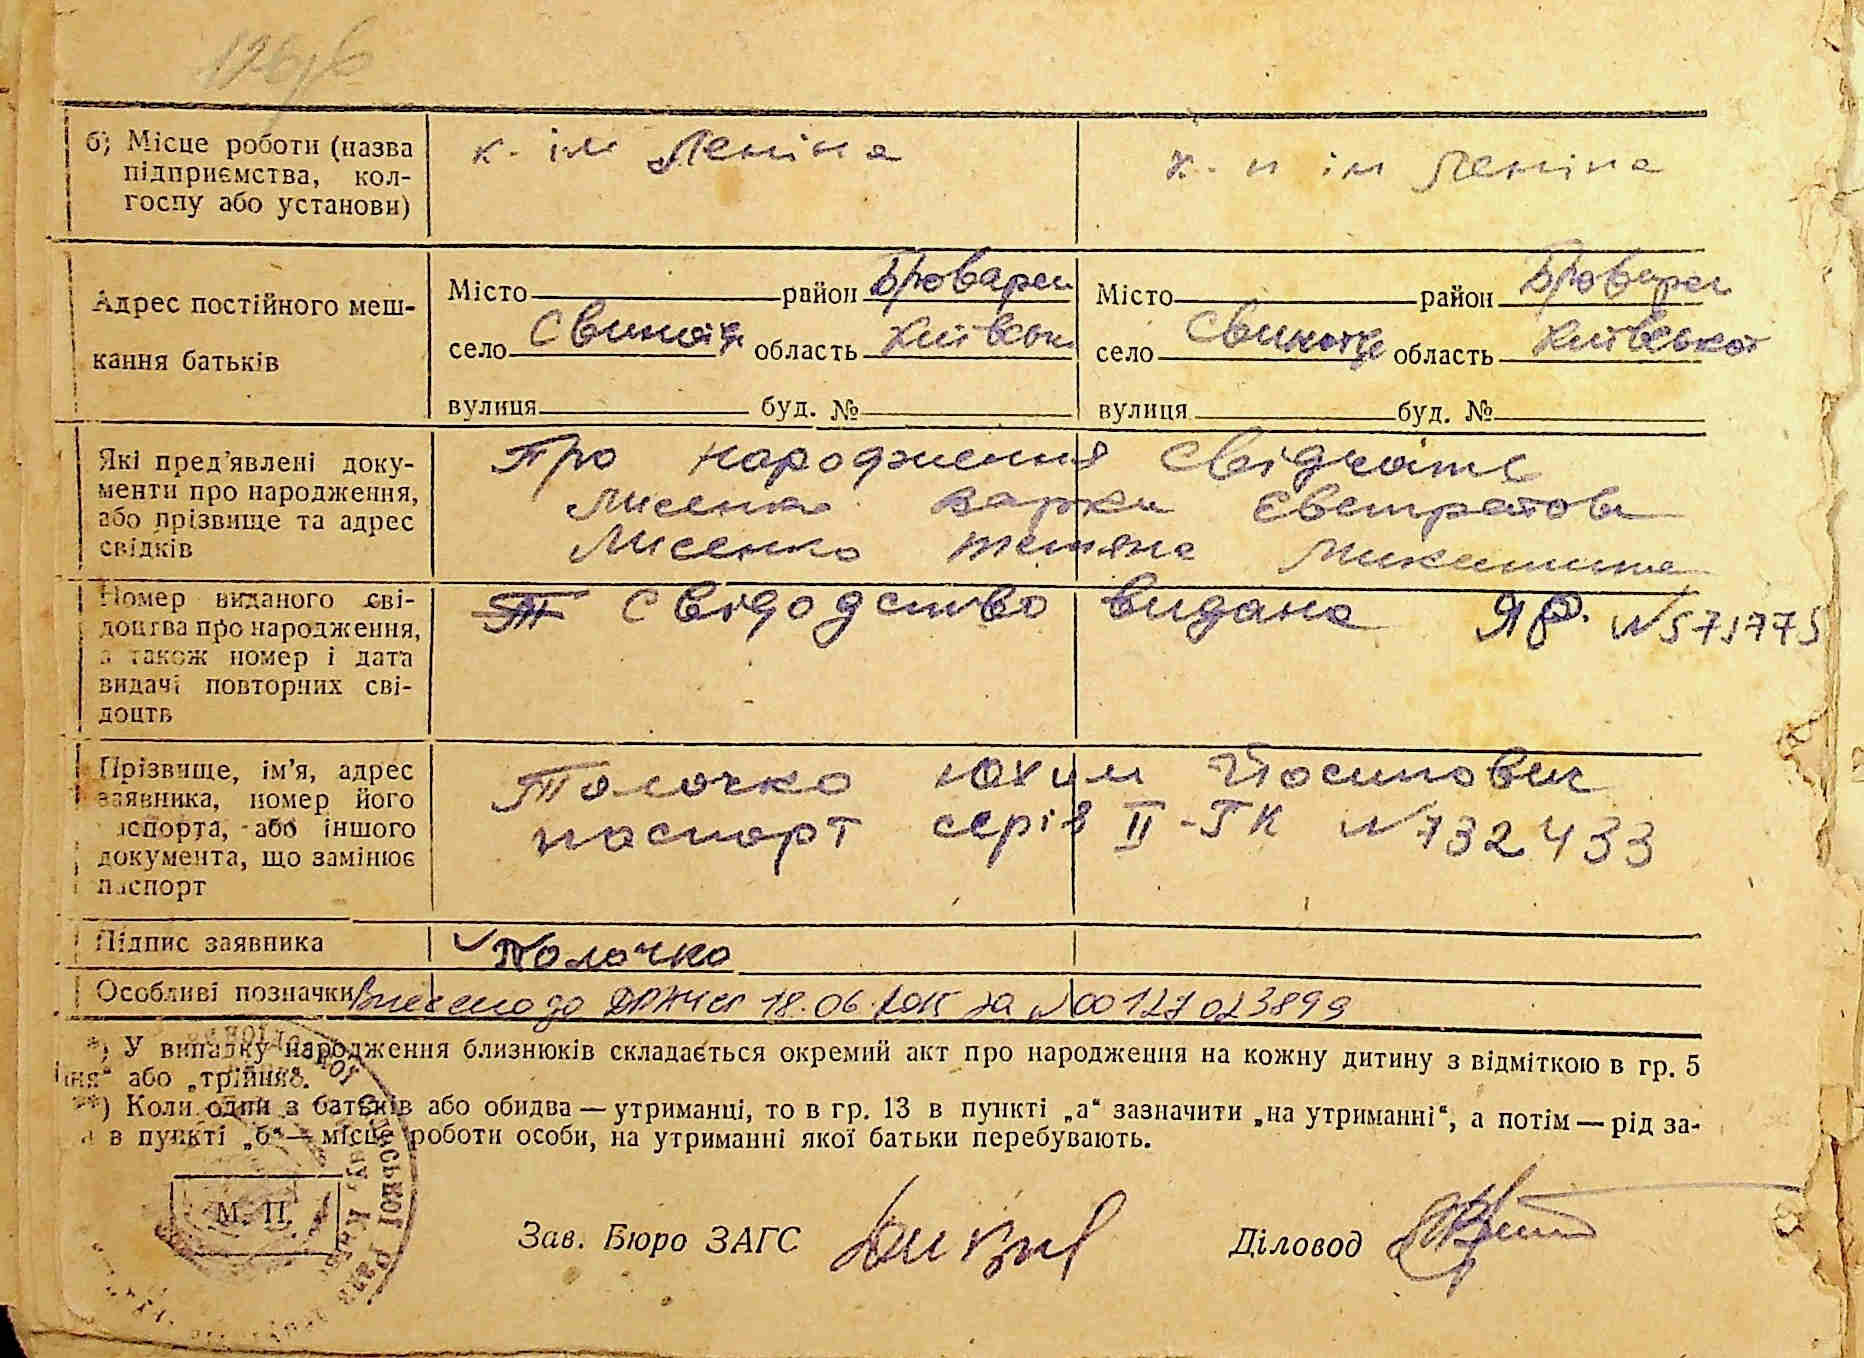 б) Місце роботи (назва
підприємства, кол-
госпу або установи)
к. ім Леніна
к. п ім Леніна
Адрес постійного меш-
кання батьків
Місто район Броварсь
село область Київськ
вулиця буд. №
Місто район Броварсь
село область Київської
вулиця буд. №
Які пред'явлені доку-
менти про народження,
або прізвище та адрес
свідків
Про народження свідчать
Лисенко Варка Євстратова
Лисенко тетяна Микитина
Номер виданого сві-
доцтва про народження,
а також номер і дата
видачі повторних сві-
доцтв
Свідодство видано ЯР. №571775
Прізвище, ім'я, адрес
заявника, номер його
паспорта, або іншого
документа, що замінює
паспорт
Толочко Юхим Йосипович
паспорт серія II-ГК №732433
Підпис заявника
Толочко
Особливі позначки Внесено до ДРАЦСГ 18.06.2015 за №00127023899
*) У випадку народження близнюків складається окремий акт про народження на кожну дитину з відміткою в гр. 5
або „трійня“.
**) Коли один з батьків або обидва — утриманці, то в гр. 13 в пункті „а“ зазначити „на утриманні“, а потім — рід за-
в пункті „б“ — місце роботи особи, на утриманні якої батьки перебувають.
М. П.
Зав. Бюро ЗАГС
Діловод